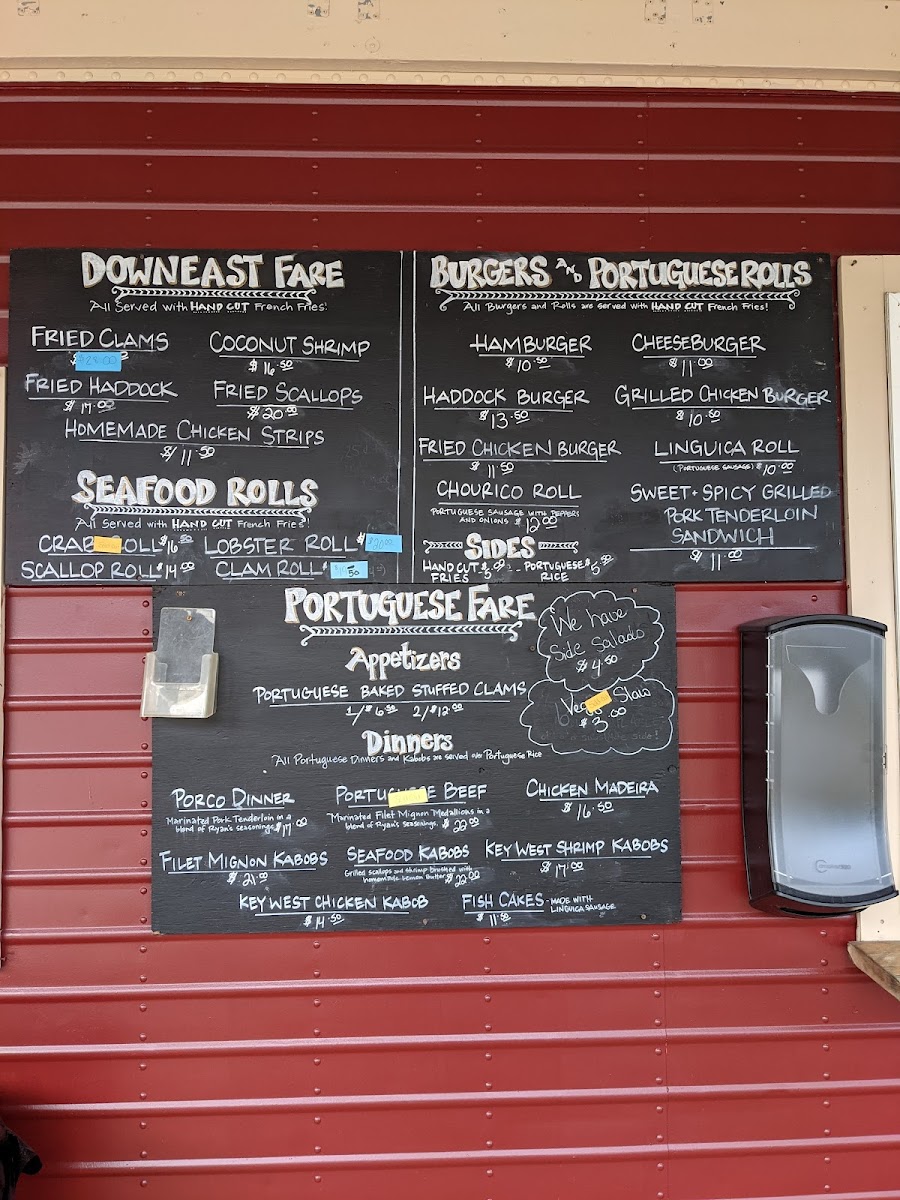 DOWNEAST FARE
All Served with HAND CUT French Fries!
FRIED CLAMS
COCONUT SHRIMP
$16.50
FRIED HADDOCK
$17.00
FRIED SCALLOPS
$20.00
HOMEMADE CHICKEN STRIPS
$11.50
SEAFOOD ROLLS
All Served with HAND CUT French Fries!
CRAB ROLL $16.50
LOBSTER ROLL $
SCALLOP ROLL $14.00
CLAM ROLL $
BURGERS AND PORTUGUESE ROLLS
All Burgers and Rolls are served with HAND CUT French Fries!
HAMBURGER
$10.50
CHEESEBURGER
$11.00
HADDOCK BURGER
$13.50
GRILLED CHICKEN BURGER
$10.50
FRIED CHICKEN BURGER
$11.50
LINGUICA ROLL
(PORTUGUESE SAUSAGE) $10.00
CHOURICO ROLL
PORTUGUESE SAUSAGE WITH PEPPERS
AND ONIONS $12.00
SWEET + SPICY GRILLED
PORK TENDERLOIN
SANDWICH
$11.00
SIDES
HAND CUT FRIES $5.00 - PORTUGUESE RICE $5.50
PORTUGUESE FARE
We have
Side Salads
$4.50
Slaw
$3.00
Appetizers
PORTUGUESE BAKED STUFFED CLAMS
1/$6.50 2/$12.00
Dinners
All Portuguese Dinners and Kabobs are served over Portuguese Rice
PORCO DINNER
Marinated Pork Tenderloin in a
blend of Ryan's seasonings $17.00
PORTUGUESE BEEF
Marinated Filet Mignon Medallions in a
blend of Ryan's seasonings. $22.00
CHICKEN MADEIRA
$16.50
FILET MIGNON KABOBS
$21.00
SEAFOOD KABOBS
Grilled scallops and shrimp brushed with
homemade lemon butter $22.00
KEY WEST SHRIMP KABOBS
$17.00
KEY WEST CHICKEN KABOB
$14.50
FISH CAKES - MADE WITH
LINGUICA SAUSAGE
$11.50